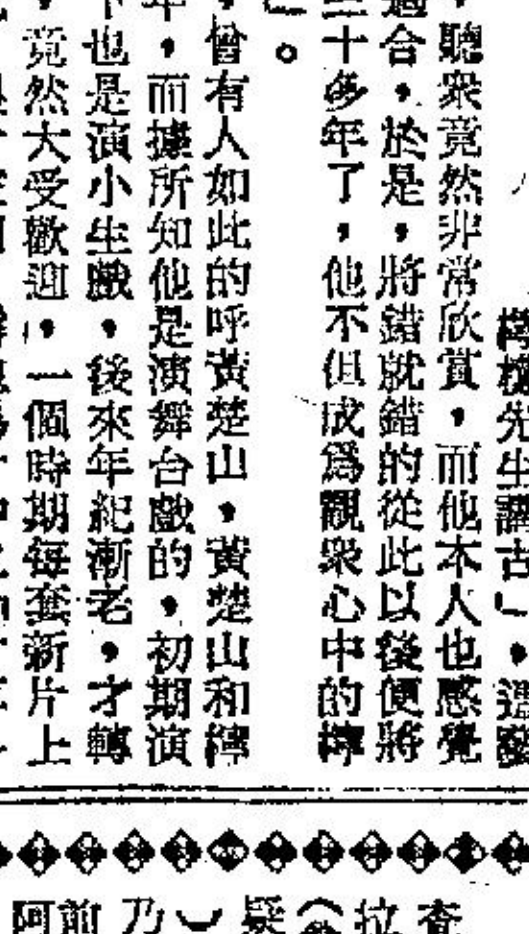 先生講古」，
，聽衆竟然非常欣賞，而他本人也感覺
適合，於是，將錯就錯的從此以後便將
三十多年了，他不但成爲觀衆心中的
」。
，曾有人如此的呼黃楚山，黃楚山和
年，而據所知他是演舞台戲的，初期演
下也是演小生戲，後來年紀漸老，才轉
，竟然大受歡迎，一個時期每套新片上
查
拉
疑
乃
前
阿